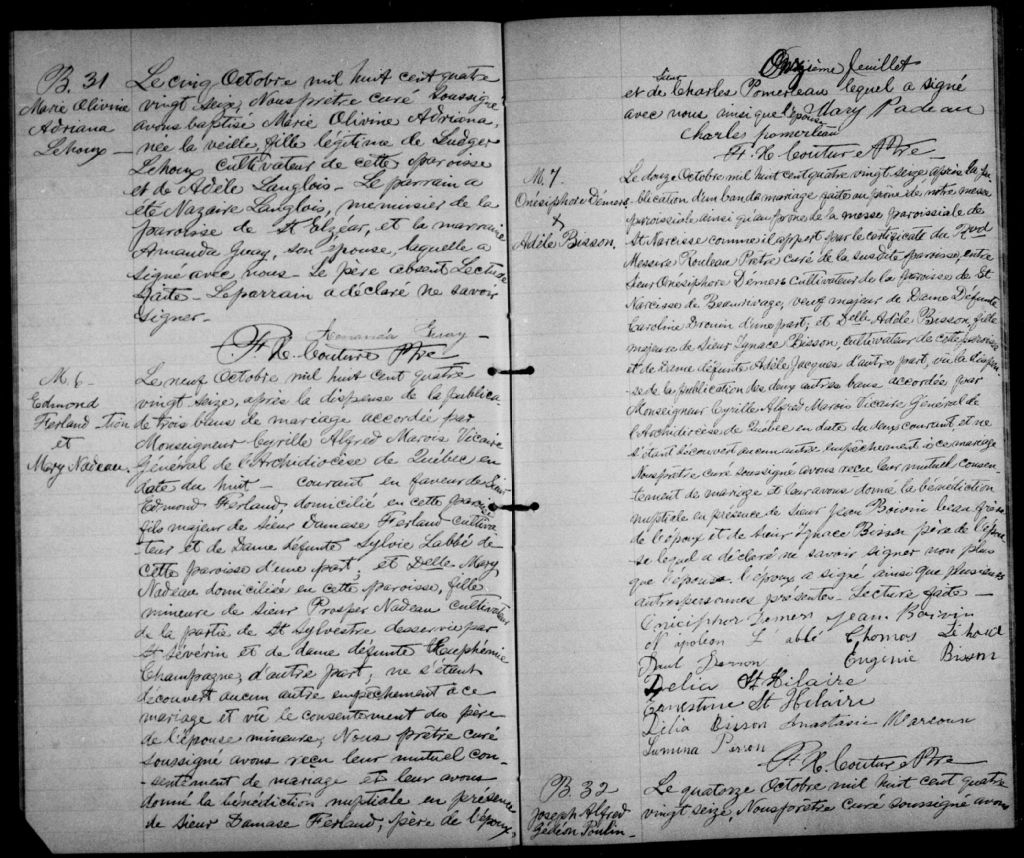 B. 31
Marie Olivine
Adriana
Lehoux
Le cinq Octobre mil huit cent quatre
vingt seize, Nous prêtre curé soussigné
avons baptisé Marie Olivine Adriana,
née la veille, fille légitime de Ludger
Lehoux cultivateur de cette paroisse
et de Adèle Langlois - Le parrain a
été Nazaire Langlois, menuisier de la
paroisse de St Elzéar, et la marraine
Amanda Guay, son épouse, laquelle a
signé avec nous - Le père absent Lecture
faite - Le parrain a déclaré ne savoir
signer.-
Amanda Guay -
F. X. Couture Ptre
M. 6 -
Edmond
Ferland
et
Mary Nadeau,
Le neuf Octobre mil huit cent quatre
vingt seize, après la dispense de la publica-
-tion de trois bans de mariage accordée par
Monseigneur Cyrille Alfred Marois Vicaire
Général de l'Archidiocèse de Québec en
date du huit - courant en faveur de Sieur
Edmond Ferland, domicilié en cette paroisse
fils majeur de Sieur Damase Ferland cultiva-
teur et de Dame défunte Sylvie Labbé de
cette paroisse d'une part; et Delle Mary
Nadeau domiciliée en cette paroisse, fille
mineure de Sieur Prosper Nadeau cultivateur
de la partie de St Sylvestre desservie par
St Séverin et de dame défunte Euphémie
Champagne, d'autre part; ne s'étant
découvert aucun autre empêchement à ce
mariage et vû le consentement du père
de l'épouse mineure, Nous prêtre curé
soussigné avons reçu leur mutuel con-
-sentement de mariage et leur avons
donné la bénédiction nuptiale en présence
de Sieur Damase Ferland, père de l'époux,
Onzième feuillet
et de Sieur Charles Pomerleau lequel a signé
avec nous, ainsi que l'épouse Mary Nadeau
Charles pomerleau
F. X. Couture Ptre -
M. 7.
Onésiphore Démers
X
Adèle Bisson,
Le douze Octobre mil huit cent quatre vingt seize après la pu-
blication d'un ban de mariage faite au prône de notre messe
paroissiale ainsi qu'au prône de la messe paroissiale de
St Narcisse comme il appert par le certificat du Rvd
Messire Rouleau Prêtre curé de la susdite paroisse, entre
Sieur Onésiphore Démers cultivateur de la paroisse de St
Narcisse de Beaurivage, veuf majeur de Dame Défunte
Caroline Drouin d'une part; et Delle Adèle Bisson, fille
majeure de Sieur Ignace Bisson, cultivateur de cette paroisse
et de Dame défunte Adèle Jacques d'autre part, vû la dispen-
se de la publication des deux autres bans accordée par
Monseigneur Cyrille Alfred Marois Vicaire Général de
l'Archidiocèse de Québec en date du deux courant, et ne
s'étant découvert aucun autre empêchement à ce mariage
Nous prêtre curé soussigné avons reçu leur mutuel consen-
tement de mariage et leur avons donné la bénédiction
nuptiale en présence de Sieur Jean Boivin beau frère
de l'époux et de Sieur Ignace Bisson père de l'épou-
se lequel a déclaré ne savoir signer non plus
que l'épouse. l'époux a signé ainsi que plusieurs
autres personnes présentes - Lecture faite -
Onéciphor Demers Jean Boivin
Napoleon L'abbé Thomas
Eugénie Bisson
Delia St Hilaire
Ernestine St Hilaire
Délia Bisson Anastasie Marcoux
Lumina Perron
F. X. Couture Ptre
B. 32
Joseph Alfred
Gédéon Poulin -
Le quatorze Octobre mil huit cent quatre
vingt seize, Nous prêtre curé soussigné avons